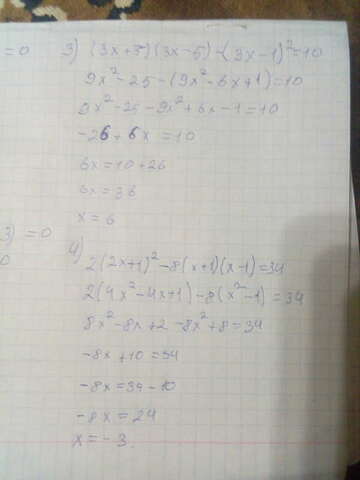 = 0
3) (3x+5)(3x-5)-(3x-1)²=10
9x²-25-(9x²-6x+1)=10
9x²-25-9x²+6x-1=10
-26+6x=10
6x=10+26
6x=36
x=6
3) =0
0
4) 2(2x+1)²-8(x+1)(x-1)=34
2(4x²-4x+1)-8(x²-1)=34
8x²-8x+2-8x²+8=34
-8x+10=34
-8x=34-10
-8x=24
x=-3.